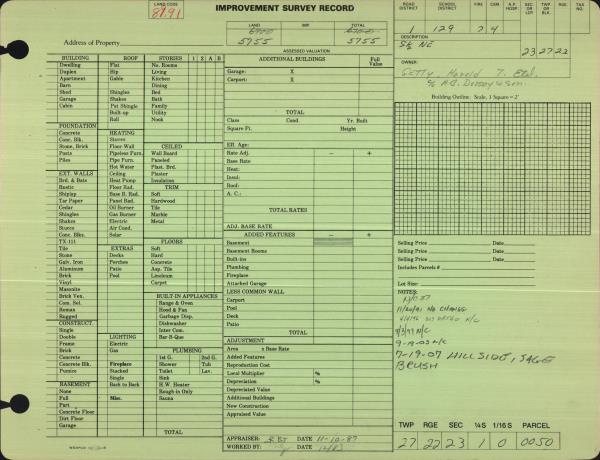 LAND CODE
8191
IMPROVEMENT SURVEY RECORD
LAND IMP. TOTAL
5755 5755
Address of Property
ASSESSED VALUATION
ROAD DISTRICT SCHOOL DISTRICT FIRE CEM. A.P. HOSP. SEC. OR LOT TWP. OR BLK. RGE
1 129 7 4
DESCRIPTION
SE NE 23 27 22
OWNER:
Getty, Harold T. Etal.
BUILDING ROOF STORIES 1 2 A B
Dwelling Flat No. Rooms
Duplex Hip Living
Apartment Gable Kitchen
Barn Dining
Shed Shingles Bed
Garage Shakes Bath
Cabin Pat Shingle Family
Built-up Utility
Roll Nook
FOUNDATION
Concrete HEATING
Conc. Blk. Stoves CEILED
Stone, Brick Floor Wall Wall Board
Posts Pipeless Furn. Paneled
Piles Pipe Furn. Plast. Brd.
Hot Water Plaster
EXT. WALLS Ceiling Insulation
Brd. & Bats Heat Pump TRIM
Rustic Floor Rad. Soft
Shiplap Base B. Rad. Hardwood
Tar Paper Panel Rad. Tile
Cedar Oil Burner Marble
Shingles Gas Burner Metal
Shakes Electric
Stucco Air Cond.
Conc. Blks. Solar FLOORS
TX-111 Soft
Tile EXTRAS Hard
Stone Decks Concrete
Galv. Iron Porches Asp. Tile
Aluminum Patio Linoleum
Brick Pool Carpet
Vinyl
Masonite
Brick Ven. BUILT-IN APPLIANCES
Com. Sel. Range & Oven
Roman Hood & Fan
Rugged Garbage Disp.
CONSTRUCT. Dishwasher
Single Inter Com.
Double LIGHTING Bar-B-Que
Frame Electric
Brick Gas PLUMBING
Concrete 1st G. 2nd G.
Concrete Blk. Fireplace Shower Tub
Pumice Stacked Toilet Lav.
Single Sink
BASEMENT Back to Back H.W. Heater
None Rough-in Only
Full Misc. Sauna
Part
Concrete Floor
Dirt Floor
Garage TOTAL
ADDITIONAL BUILDINGS Full Value
Garage: X
Carport: X
TOTAL
Class Cond. Yr. Built
Square Ft. Height
Eff. Age:
Rate Adj. - +
Base Rate
Heat:
Insul:
Roof:
A. C.:
TOTAL RATES
ADJ. BASE RATE
ADDED FEATURES - +
Basement
Basement Rooms
Built-ins
Plumbing
Fireplace
Attached Garage
LESS COMMON WALL
Carport
Pool
Deck
Patio
TOTAL
ADJUSTMENT
Area ± Base Rate
Added Features
Reproduction Cost
Local Multiplier %
Depreciation %
Depreciated Value
Additional Buildings
New Construction
Appraised Value
APPRAISER: DATE 11-10-87
WORKED BY: DATE 12/87
Building Outline: Scale, 1 Square = 2'
Selling Price Date
Selling Price Date
Selling Price Date
Includes Parcels #
Lot Size:
NOTES:
11/20/91 NO CHANGE
N/C
9-9-03 N/C
7-19-07 HILLSIDE, SAGE
BRUSH
TWP RGE SEC ¼S 1/16 S PARCEL
27 22 23 1 0 0050